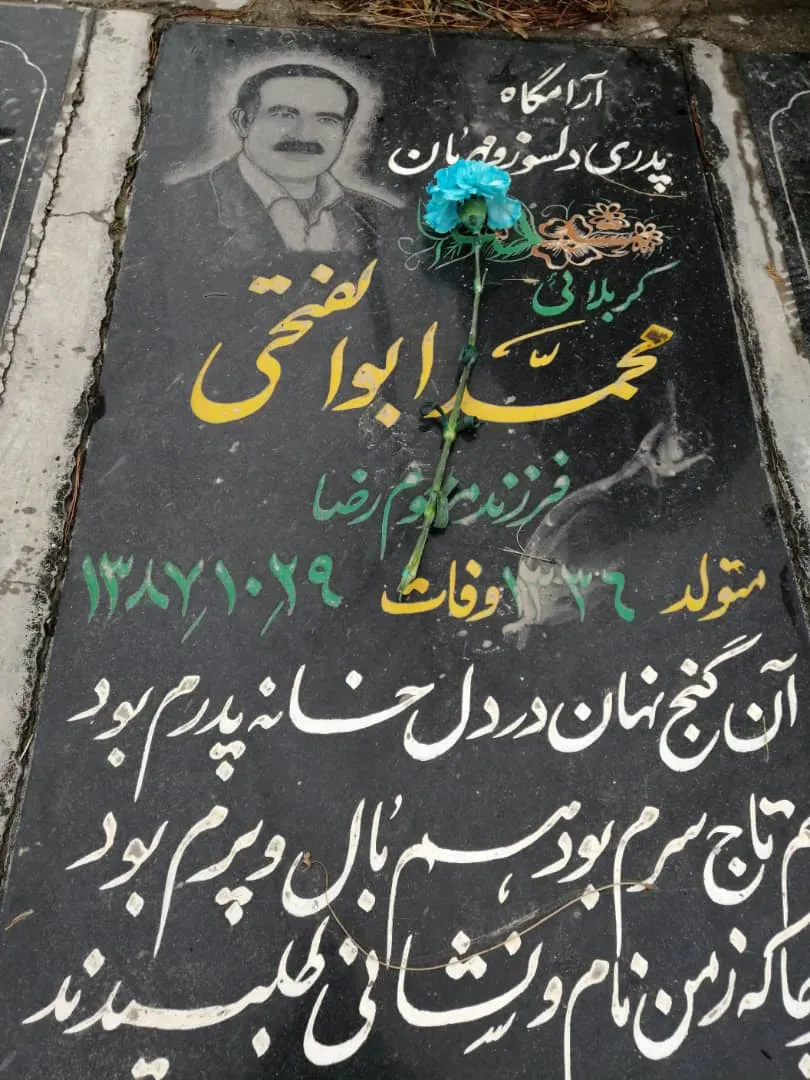 آرامگاه
پدری دلسوز و مهربان
کربلائی
محمّد ابوالفتحی
فرزند مرحوم رضا
متولد ۱۳۳۶ وفات ۱۳۸۷٫۱۰٫۲۹
آن گنج نهان در دل خانه پدرم بود
هم تاج سرم بود هم بال و پرم بود
که ز من نام و نشانی طلبیدند